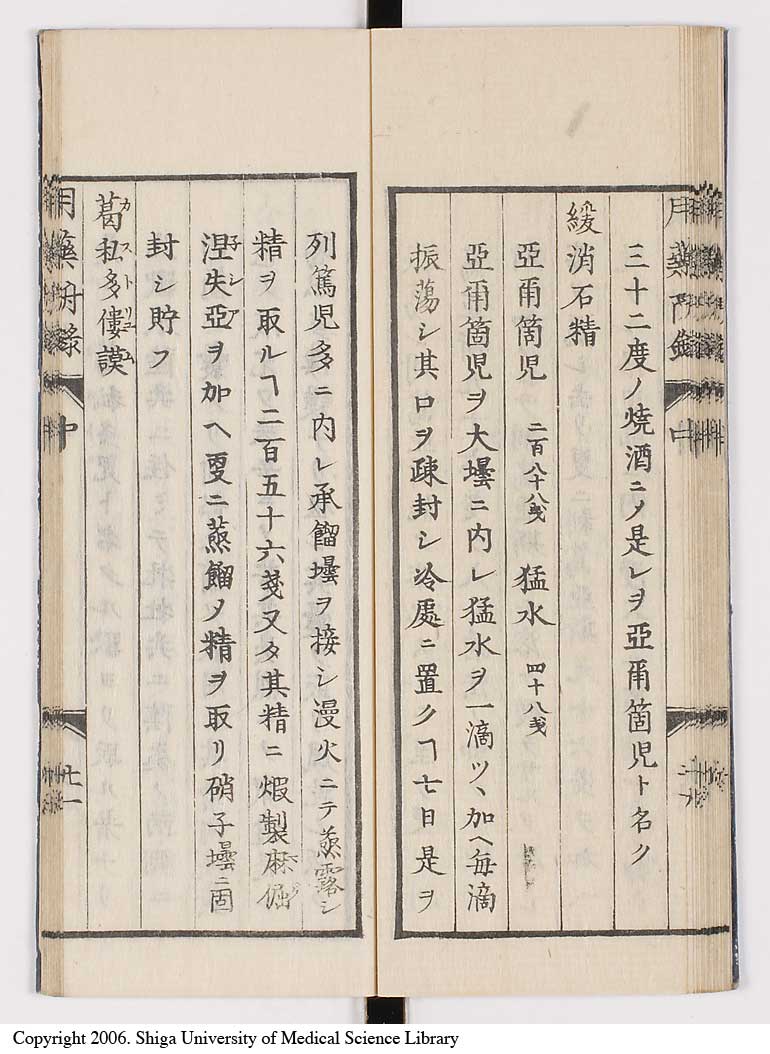 三十二度ノ焼酒ニメ是レヲ亞爾箇児ト名ク
緩消石精
亞爾箇児 二百八十八戔 猛水 四十八戔
亞爾箇児ヲ大壜ニ内レ猛水ヲ一滴ツヽ加ヘ毎滴
振蕩シ其口ヲ疎封シ冷處ニ置クヿ七日是ヲ
列篤児多ニ内レ承餾壜ヲ接シ漫火ニテ蒸露シ
精ヲ取ルヿ二百五十六戔又タ其精ニ煆製麻倔
涅失亞ヲ加ヘ更ニ蒸餾メ精ヲ取リ硝子壜ニ固
封シ貯フ
葛私多僂謨
カストリユム
中
廿一
Copyright 2006. Shiga University of Medical Science Library